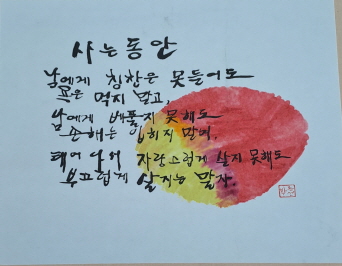 사는동안
남에게 칭찬은 못들어도
욕은 먹지 말고,
남에게 베풀지 못해도
손해는 입히지 말며,
태어나서 자랑스럽게 살지 못해도
부끄럽게 살지는 말자.